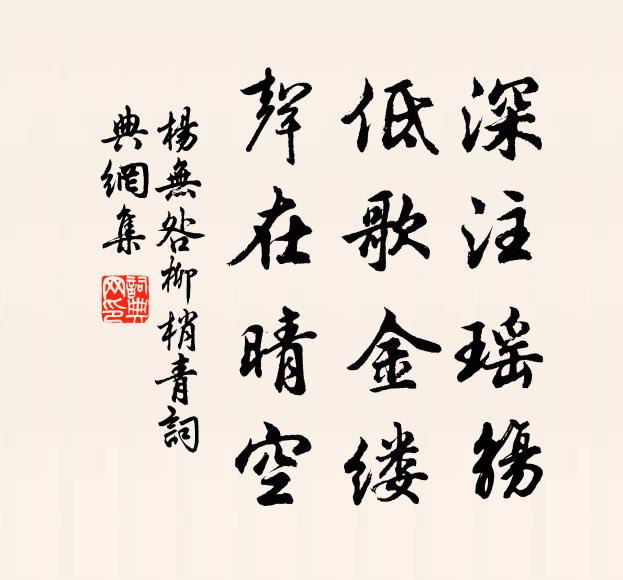 深注瑶觴
低歌金缕
聲在晴空
楊無咎柳梢青詞
典網集
詞典
网印